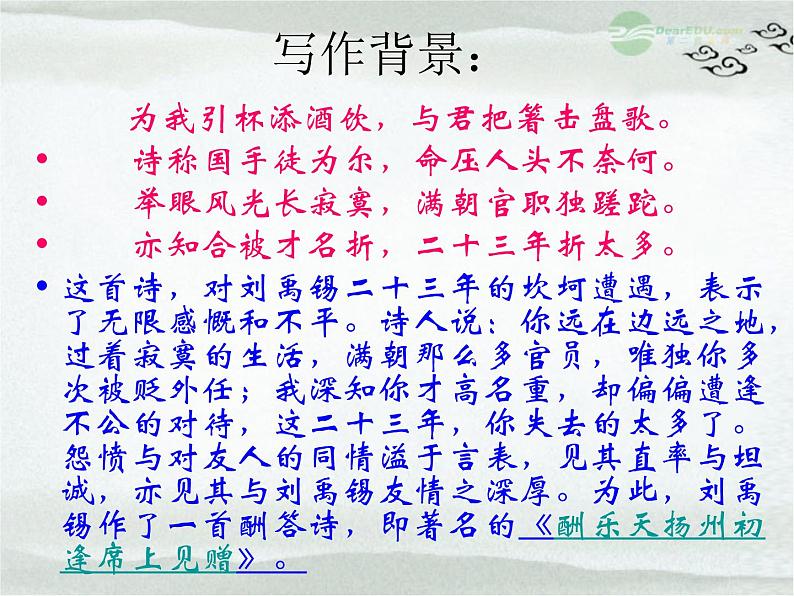 DearEDU.com
写作背景：
为我引杯添酒饮，与君把箸击盘歌。
• 诗称国手徒为尔，命压人头不奈何。
• 举眼风光长寂寞，满朝官职独蹉跎。
• 亦知合被才名折，二十三年折太多。
• 这首诗，对刘禹锡二十三年的坎坷遭遇，表示
了无限感慨和不平。诗人说：你远在边远之地，
过着寂寞的生活，满朝那么多官员，唯独你多
次被贬外任；我深知你才高名重，却偏偏遭逢
不公的对待，这二十三年，你失去的太多了。
怨愤与对友人的同情溢于言表，见其直率与坦
诚，亦见其与刘禹锡友情之深厚。为此，刘禹
锡作了一首酬答诗，即著名的《酬乐天扬州初
逢席上见赠》。